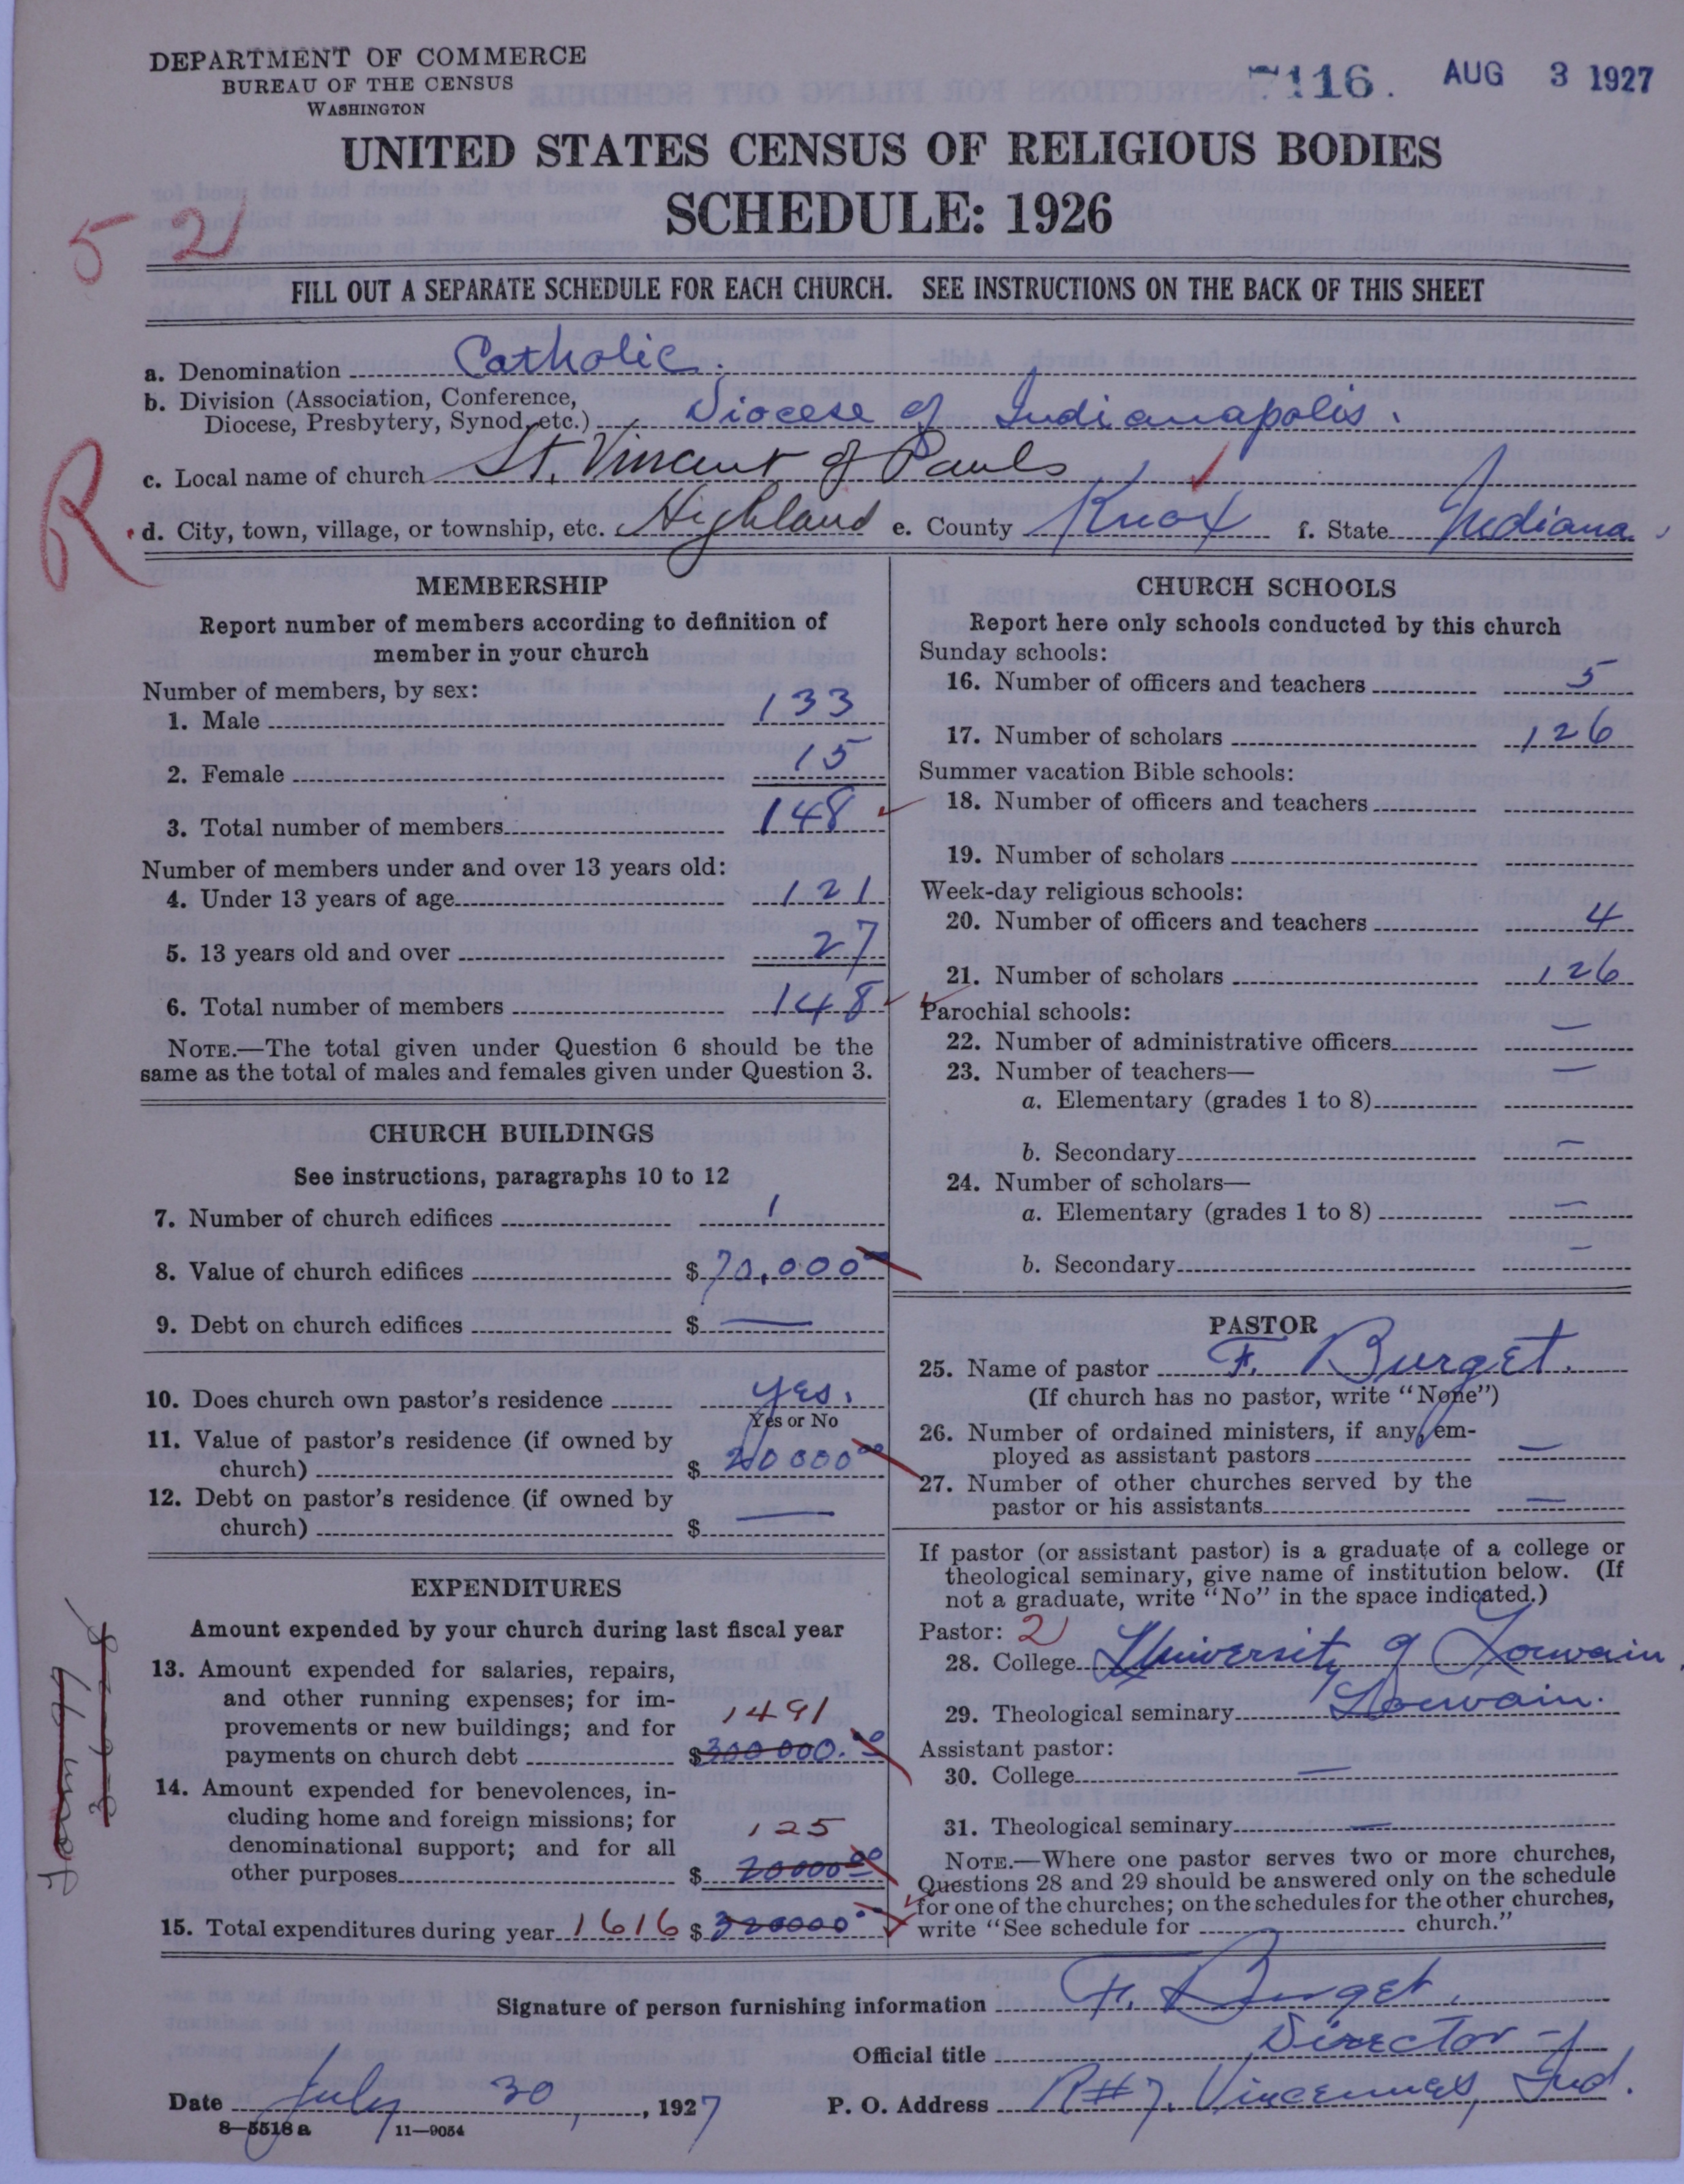 DEPARTMENT OF COMMERCE
BUREAU OF THE CENSUS
WASHINGTON
7116. AUG 3 1927
UNITED STATES CENSUS OF RELIGIOUS BODIES
SCHEDULE: 1926
52
FILL OUT A SEPARATE SCHEDULE FOR EACH CHURCH. SEE INSTRUCTIONS ON THE BACK OF THIS SHEET
a. Denomination Catholic.
b. Division (Association, Conference,
Diocese, Presbytery, Synod, etc.) Diocese of Indianapolis.
c. Local name of church St. Vincent of Pauls
R
d. City, town, village, or township, etc. Highland e. County Knox f. State Indiana.
MEMBERSHIP
Report number of members according to definition of
member in your church
Number of members, by sex:
1. Male 133
2. Female 15
3. Total number of members 148
Number of members under and over 13 years old:
4. Under 13 years of age 121
5. 13 years old and over 27
6. Total number of members 148
NOTE.—The total given under Question 6 should be the
same as the total of males and females given under Question 3.
CHURCH BUILDINGS
See instructions, paragraphs 10 to 12
7. Number of church edifices 1
8. Value of church edifices $ 70,000 00
9. Debt on church edifices $ —
10. Does church own pastor's residence yes.
Yes or No
11. Value of pastor's residence (if owned by
church) $ 20000 00
12. Debt on pastor's residence (if owned by
church) $ —
EXPENDITURES
Amount expended by your church during last fiscal year
13. Amount expended for salaries, repairs,
and other running expenses; for im-
provements or new buildings; and for 1491
payments on church debt $ 300 000. 00
14. Amount expended for benevolences, in-
cluding home and foreign missions; for
denominational support; and for all 125
other purposes $ 20000 00
15. Total expenditures during year 1616 $ 320000 00
3-6-28
CHURCH SCHOOLS
Report here only schools conducted by this church
Sunday schools:
16. Number of officers and teachers 5
17. Number of scholars 126
Summer vacation Bible schools:
18. Number of officers and teachers
19. Number of scholars
Week-day religious schools:
20. Number of officers and teachers 4
21. Number of scholars 126
Parochial schools:
22. Number of administrative officers —
23. Number of teachers— —
a. Elementary (grades 1 to 8)
b. Secondary —
24. Number of scholars—
a. Elementary (grades 1 to 8) —
b. Secondary —
PASTOR
25. Name of pastor F. Burget.
(If church has no pastor, write "None")
26. Number of ordained ministers, if any, em-
ployed as assistant pastors —
27. Number of other churches served by the
pastor or his assistants —
If pastor (or assistant pastor) is a graduate of a college or
theological seminary, give name of institution below. (If
not a graduate, write "No" in the space indicated.)
Pastor: 2
28. College University of Louvain.
29. Theological seminary Louvain.
Assistant pastor:
30. College —
31. Theological seminary —
NOTE.—Where one pastor serves two or more churches,
Questions 28 and 29 should be answered only on the schedule
for one of the churches; on the schedules for the other churches,
write "See schedule for church."
Signature of person furnishing information F. Burget.
Official title Director
Date July 30, 1927 P. O. Address R#7. Vincennes, Ind.
8—5518 a 11—9054